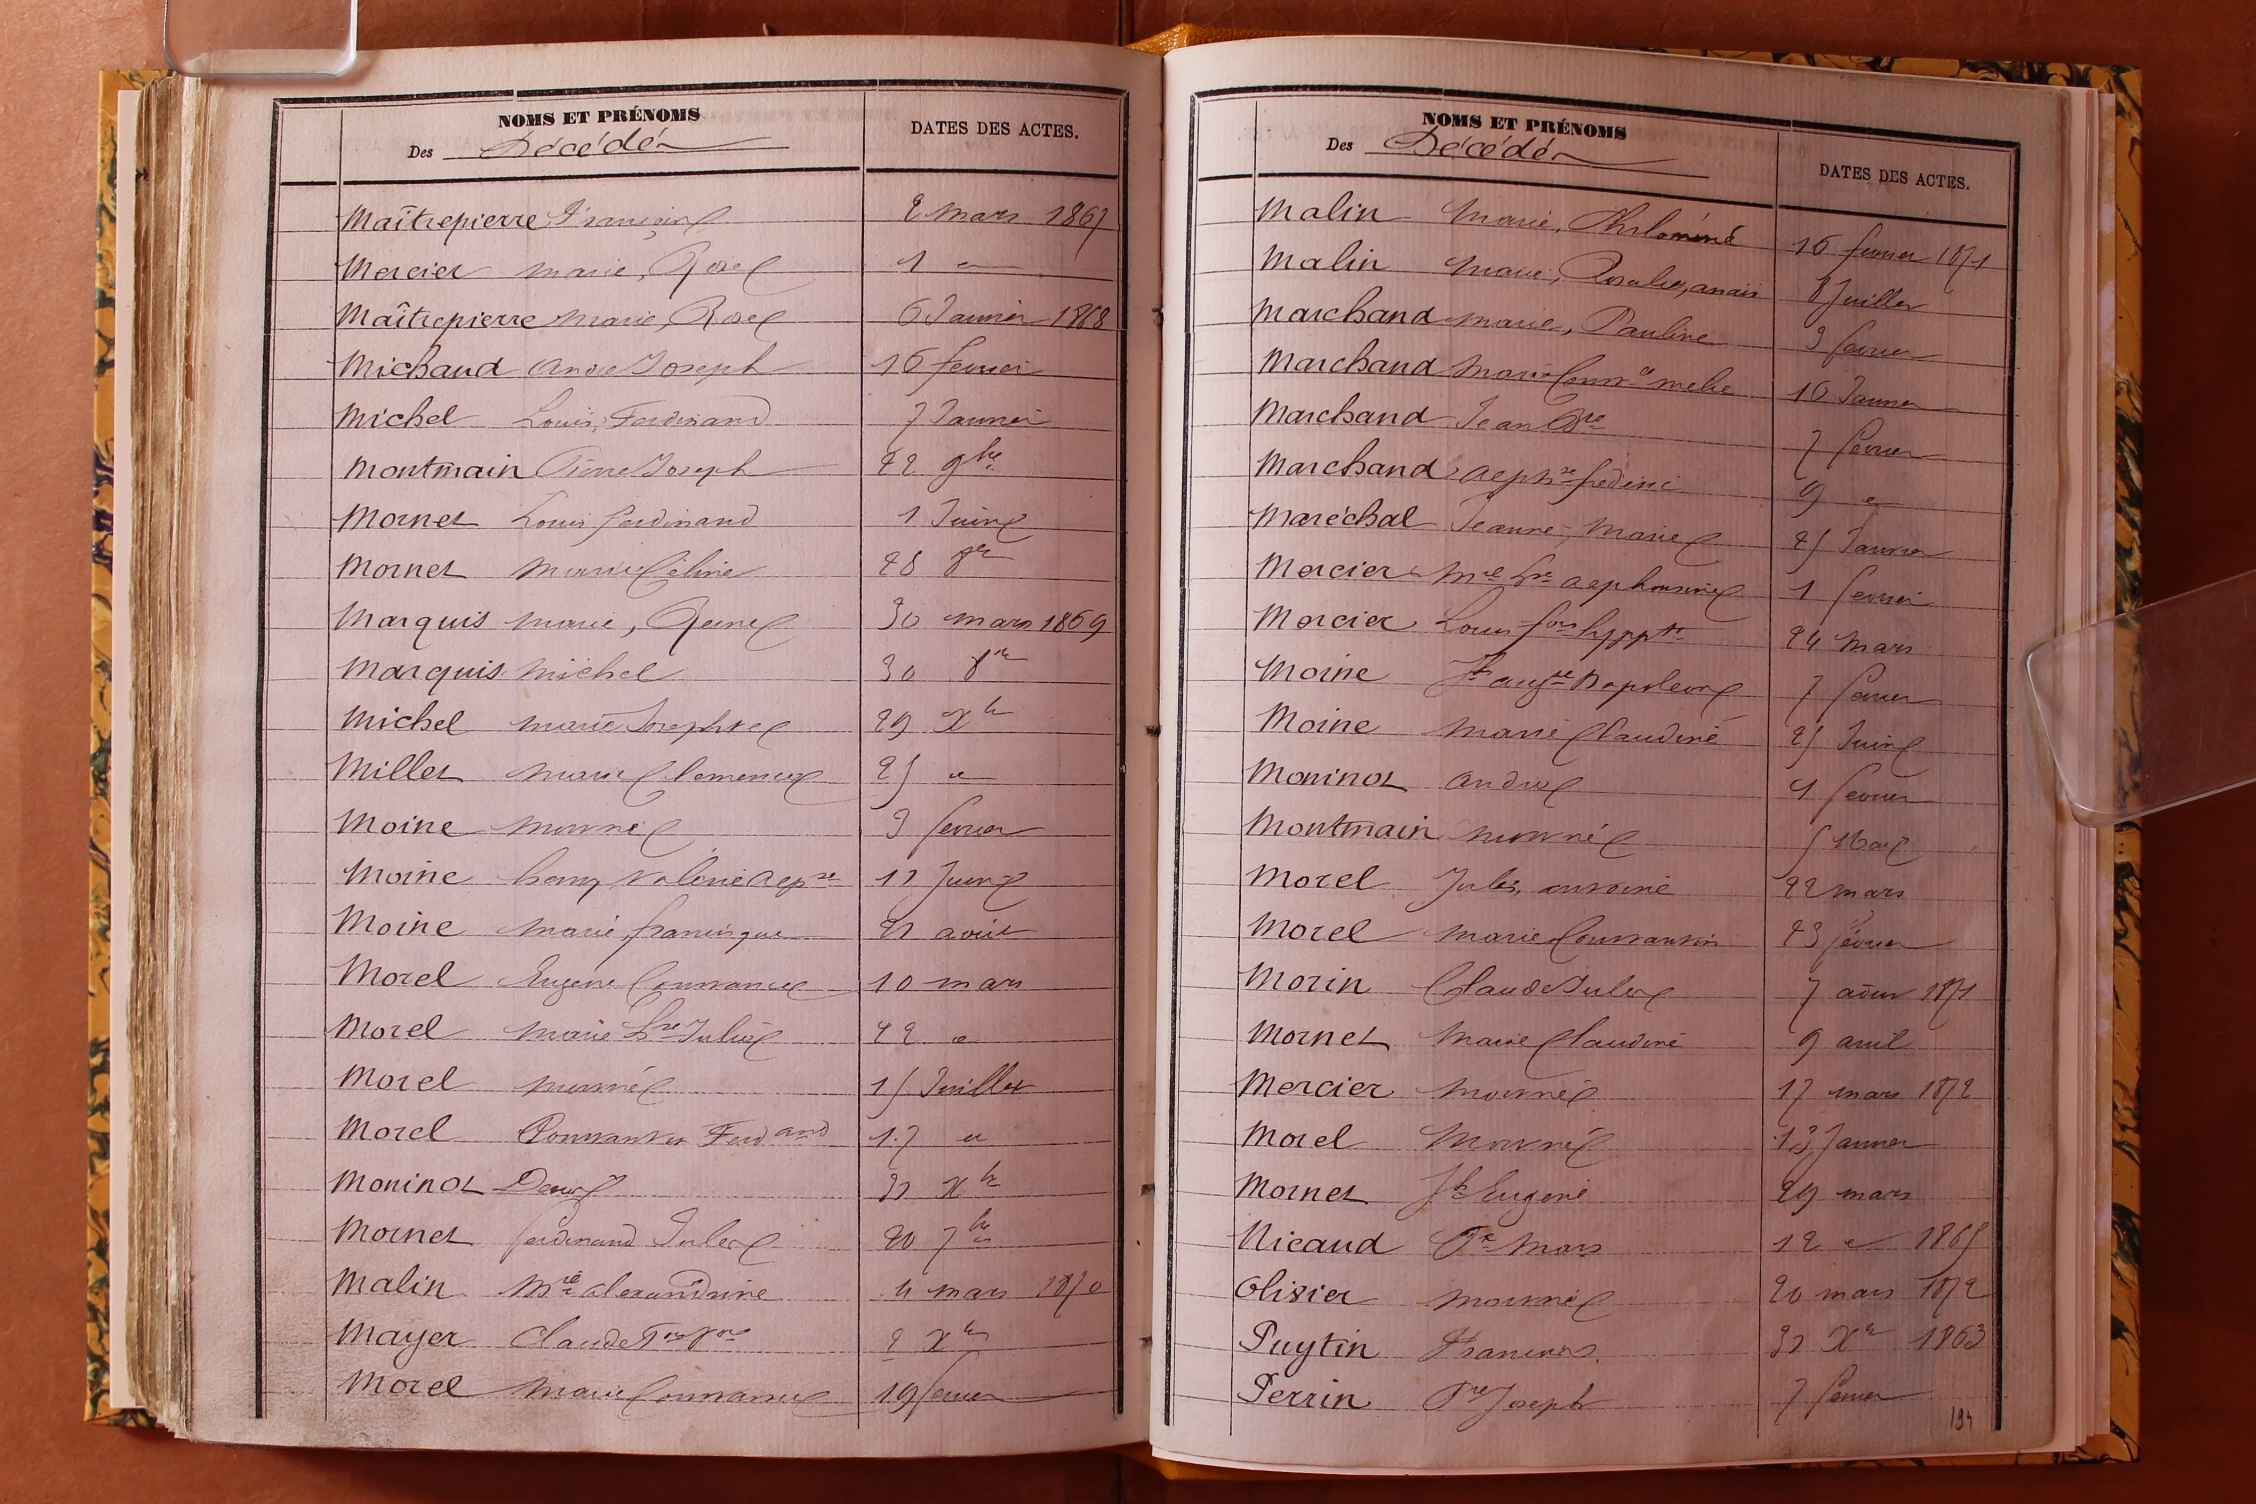 NOMS ET PRÉNOMS
Des Décédés
DATES DES ACTES.
Maîtrepierre Françoise 2 mars 1867
Mercier marie, Rose 1 "
Maîtrepierre marie, Rose 6 Janvier 1868
Michaud andre Joseph 16 fevrier
Michel Louis, Ferdinand 7 Janvier
Montmain Pierre Joseph 22 9bre
Mornet Louis ferdinand 1 Juin
Mornet marie Céline 28 8re
Marquis marie, Reine 30 mars 1869
Marquis Michel 30 8re
Michel marie Josephte 29 Xbre
Millet marie Clemence 25 "
Moine mort né 3 fevrier
Moine Valérie 11 Juin
Moine marie, francisque 21 août
Morel Eugene Constance 10 mars
Morel marie Julie 22 "
Morel mort né 15 Juillet
Morel Constantin Ferdand 17 "
Moninot 31 Xbre
Mornet ferdinand Jules 20 7bre
Malin Mie alexandrine 4 mars 1870
Mayer Claude 2 Xbre
Morel Marie Constance 19 fevrier
NOMS ET PRÉNOMS
Des Décédés
DATES DES ACTES.
Malin Marie, Philoméne 16 fevrier 1871
Malin Marie, Rosalie, anais 8 Juillet
Marchand marie, Pauline 3 fevrier
Marchand Marie 10 Janvier
Marchand Jean 7 fevrier
Marchand frederic 9 "
Maréchal Jeanne, Marie 25 Janvier
Mercier alephonsine 1 fevrier
Mercier Louis 24 Mars
Moine Napoleon 7 fevrier
Moine Marie Claudine 25 Juin
Moninot andre 4 fevrier
Montmain mort né 5 Mai
Morel Jules, antoine 22 mars
Morel Marie Constantin 23 février
Morin Claude Jules 7 août 1871
Mornet Marie Claudine 9 avril
Mercier Mort né 17 mars 1872
Morel Mort né 13 Janvier
Mornet Jh Eugene 29 mars
Nicaud Mars 12 " 1865
Olivier mort né 20 mars 1872
Puytin Francois 31 Xbre 1863
Perrin Pre Joseph 7 fevrier
194